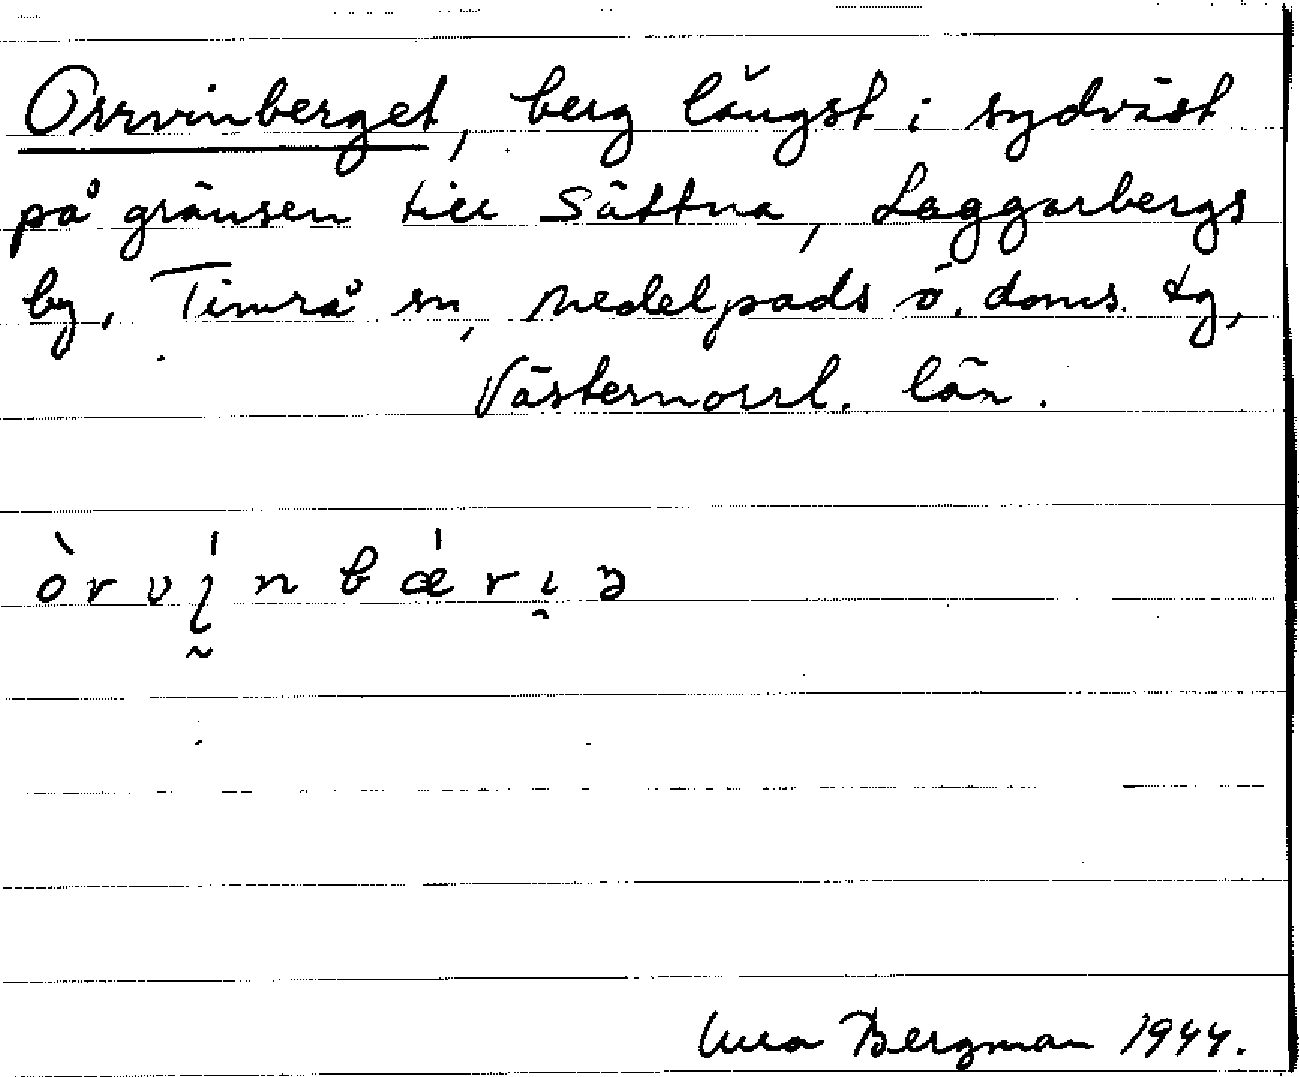 Orrvinberget, berg längst i sydväst
på gränsen till Sättna, Laggarbergs
by, Timrå sn, Medelpads ö. doms. tg,
Västernorrl. län.
òrvínbǽrı̯ə
Bergman 1944.